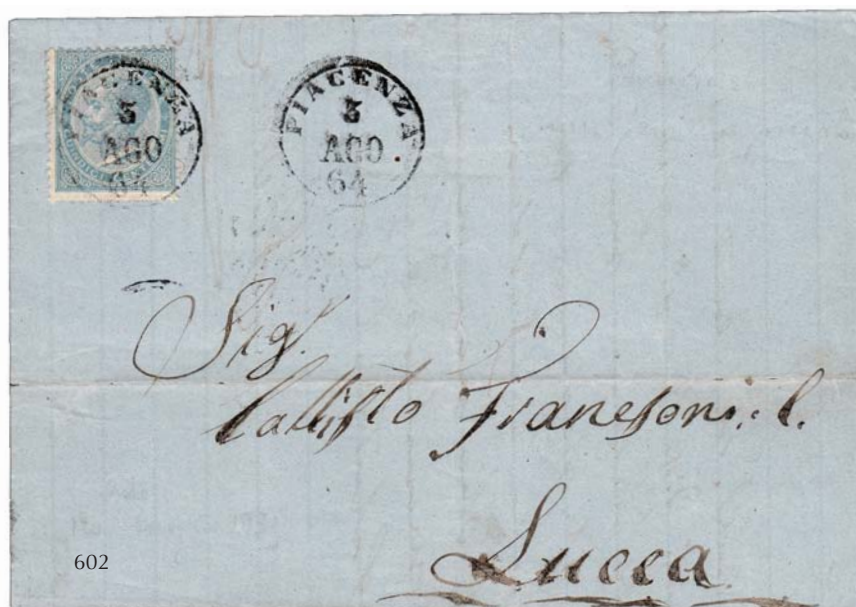 PIACENZA
5
AGO
64
PIACENZA
5
AGO
64
Sig.
Callisto Francesconi. C.
Lucca
602